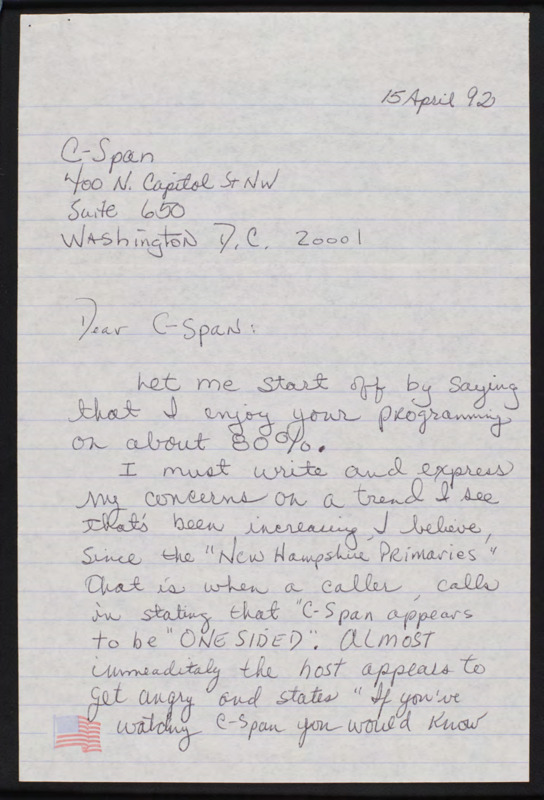 15 April 92
C-Span
400 N. Capitol St NW
Suite 650
Washington D.C. 20001
Dear C-Span:
Let me start off by saying
that I enjoy your programming
on about 80%.
I must write and express
my concerns on a trend I see
that's been increasing, I believe,
since the "New Hampshire Primaries"
That is when a caller, calls
in stating that "C-Span appears
to be "ONE SIDED". ALMOST
immeaditaly the host appears to
get angry and states "If you've
watching C-Span you would know